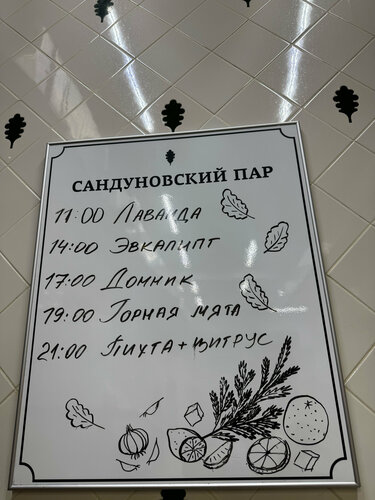 САНДУНОВСКИЙ ПАР
11:00 Лаванда
14:00 Эвкалипт
17:00 Донник
19:00 Горная мята
21:00 Пихта + цитрус